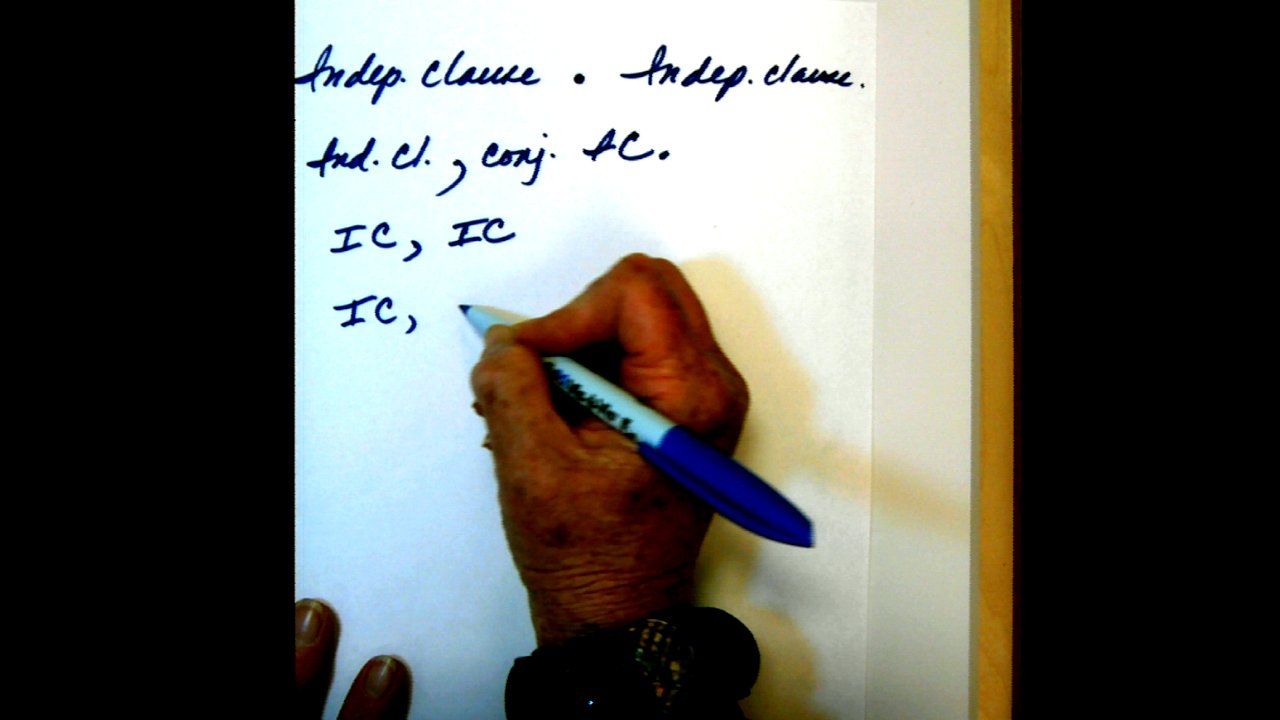 Indep. clause . Indep. clause.
Ind. cl. , conj. IC.
IC, IC
IC,